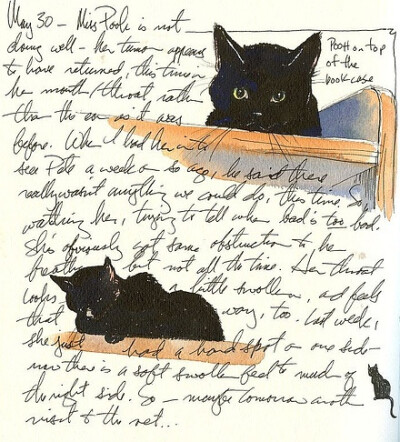 May 30 – Miss Pooh is not
doing well – her tumor appears
to have returned, this time in
her mouth/throat rather
than the ear as it was
before. When I had her in to
see Pete a week or so ago, he said there
really wasn't anything we could do, this time. So,
watching her, trying to tell when bad is too bad.
She's obviously got some obstruction to her
breathing but not all the time. Her throat
looks a little swollen, and feels
that way, too. Last week,
she just had a hard spot on one side –
now there is a soft swollen feel to much of
the right side. So – maybe tomorrow another
visit to the vet...
Pooh on top
of the
bookcase